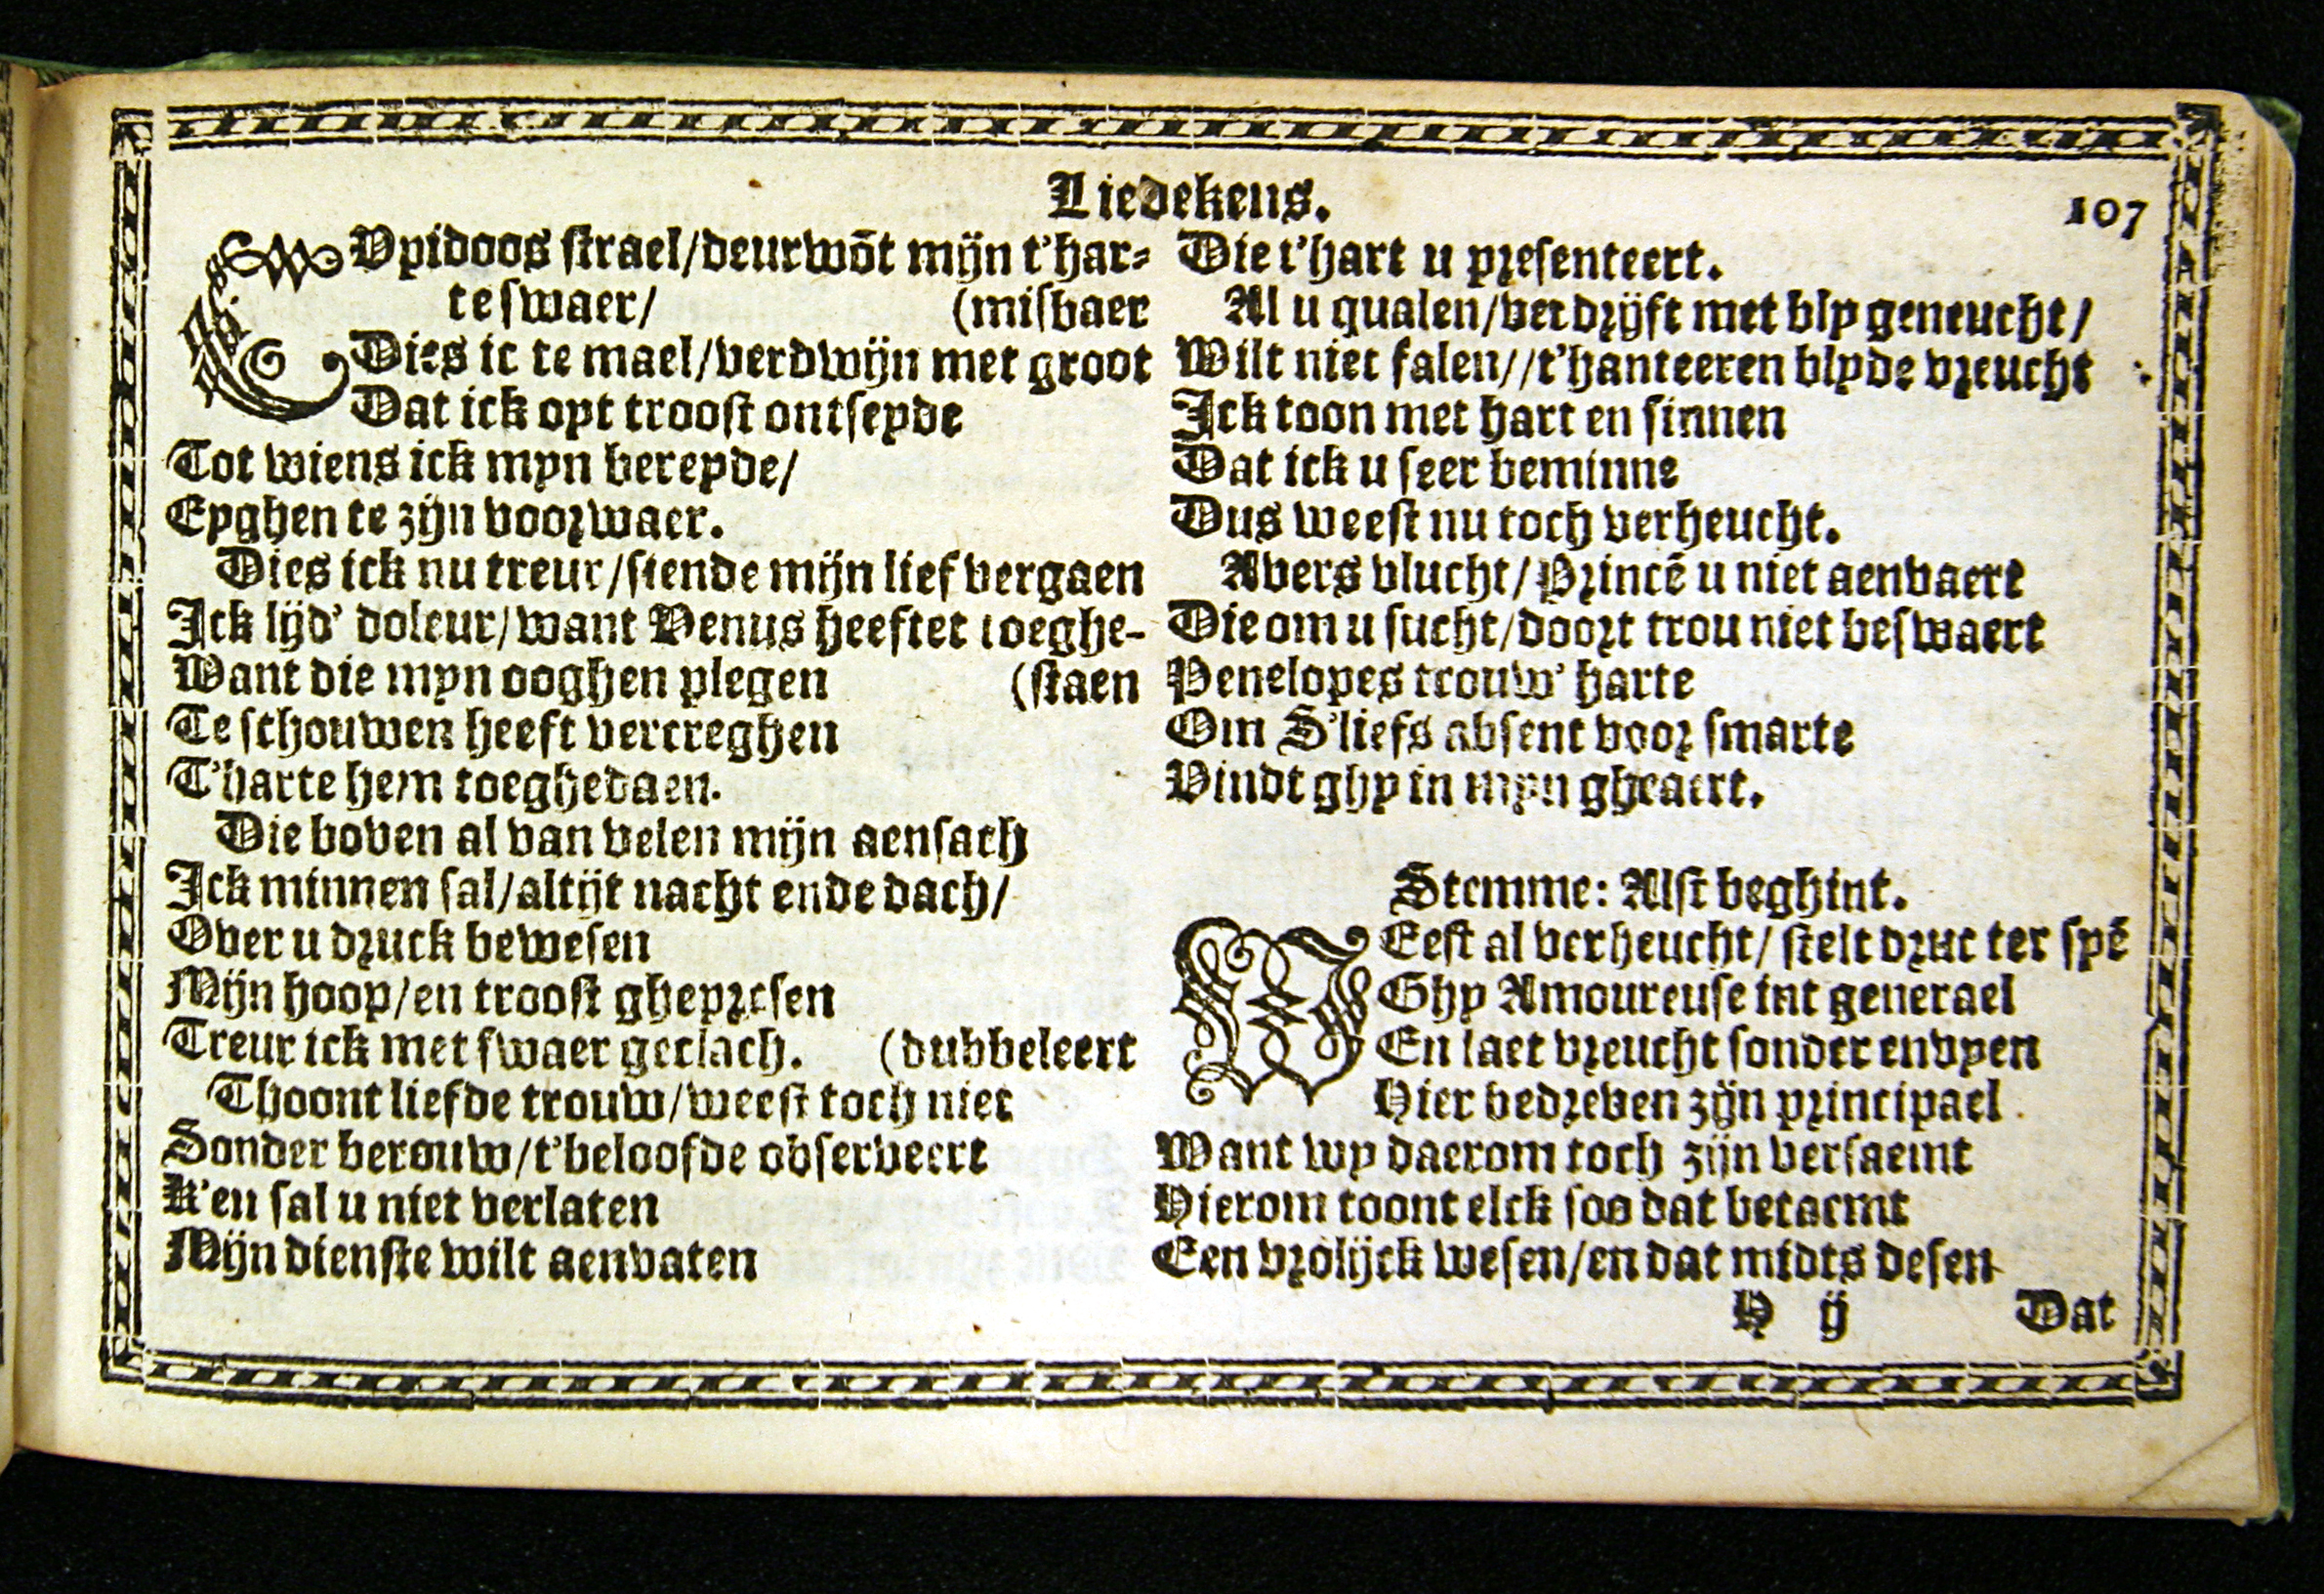 Liedekens.
107
CVpidoos strael/deurwõt mijn t'har-
te swaer/ (misbaer
Dies ic te mael/verdwijn met groot
Dat ick opt troost ontseyde
Tot wiens ick myn bereyde/
Eyghen te zijn voorwaer.
Dies ick nu treur/siende mijn lief vergaen
Ick lijd' doleur/want Venus heeftet toeghe-
Want die myn ooghen plegen (staen
Te schouwen heeft vercreghen
T'harte hem toeghedaen.
Die boven al van velen mijn aensach
Ick minnen sal/altijt nacht ende dach/
Over u druck bewesen
Mijn hoop/en troost ghepresen
Treur ick met swaer geclach. (dubbeleert
Thoont liefde trouw/weest toch niet
Sonder berouw/t'beloofde observeert
K'en sal u niet verlaten
Mijn dienste wilt aenvaten
Die t'hart u presenteert.
Al u qualen/verdrijft met bly geneucht/
Wilt niet falen//t'hanteeren blyde vreucht
Ick toon met hart en sinnen
Dat ick u seer beminne
Dus weest nu toch verheucht.
Avers vlucht/Princē u niet aenvaert
Die om u sucht/doort trou niet beswaert
Penelopes trouw' harte
Om S'liefs absent voor smarte
Vindt ghy in myn gheaert.
Stemme: Alst beghint.
WEest al verheucht/stelt druc ter spē
Ghy Amoureuse int generael
En laet vreucht sonder envyen
Hier bedreven zijn principael
Want wy daerom toch zijn versaemt
Hierom toont elck soo dat betaemt
Een vrolijck wesen/en dat midts desen
H ij Dat